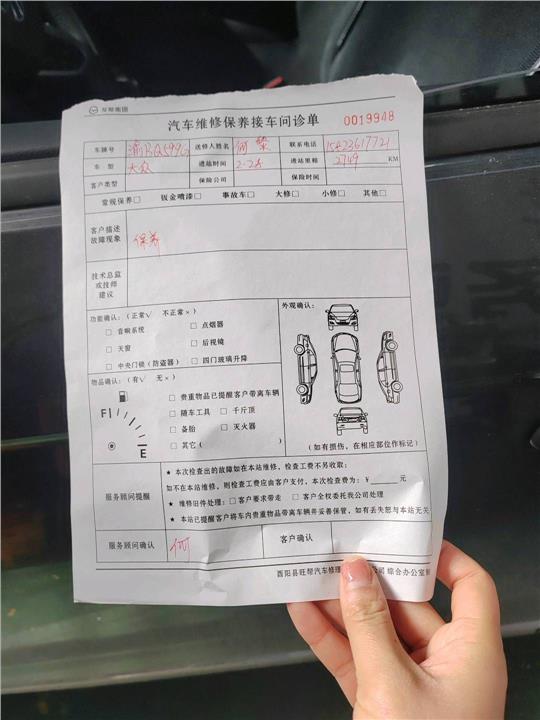 汽车维修保养接车问诊单 0019948
车牌号 送修人姓名 何 联系电话 15423617721
车型 大众 进站时间 2-28 进站里程 2749 KM
客户类型 保险公司 保险时间
常规保养□ 钣金喷漆□ 事故车□ 大修□ 小修□ 其他□
客户描述
故障现象
保养
技术总监
或技师
建议
功能确认:(正常√ 不正常×)
□ 音响系统 □ 点烟器
□ 天窗 □ 后视镜
□ 中央门锁(防盗器) □ 四门玻璃升降
外观确认:
物品确认:(有√ 无×)
□ 贵重物品已提醒客户带离车辆
□ 随车工具 □ 千斤顶
□ 备胎 □ 灭火器
□ 其它( )
F
E
(如有损伤,在相应部位作标记)
服务顾问提醒
★ 本次检查出的故障如在本站维修,检查工费不另收取;
如不在本站维修,则检查工费应由客户支付,本次检查费为:¥ 元
★ 维修旧件处理:□ 客户要求带走 □ 客户全权委托我公司处理
★ 本站已提醒客户将车内贵重物品带离车辆并妥善保管,如有丢失恕与本站无关
服务顾问确认 何 客户确认
酉阳县旺帮汽车修理 公司 综合办公室制